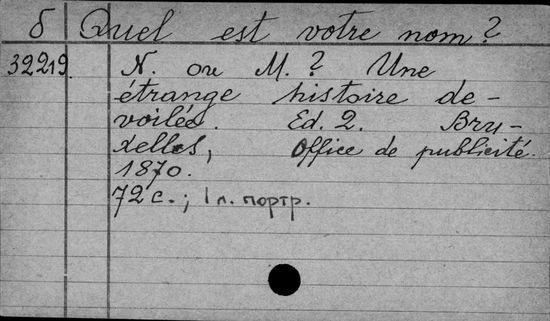 δ Quel est votre nom?
32219. N. ou M.? Une
étrange histoire de-
voilés. Ed. 2. Bru-
xelles, Office de publicité.
1870.
72 с.; 1 л. портр.